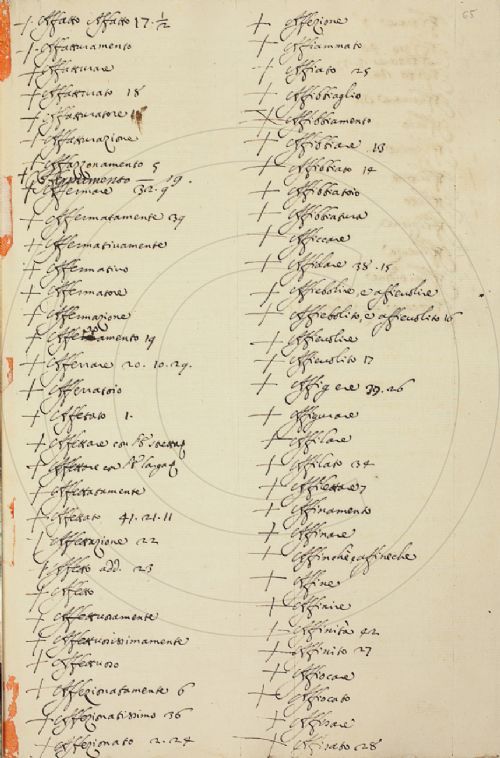 65
+ Affatto Affatto 17. ½
+ Affatturamento
+ Affatturare
+ Affatturato 18
+ Affatturatore
+ Affatturazione
+ Affazzonamento 5
+ 19.
+ Affermare 32. 9
+ Affermatamente 39
+ Affermativamente
+ Affermativo
+ Affermatore
+ Affermazione
+ 19
+ Afferrare 20. 10. 29.
+ Afferratoio
+ Affetato 1.
+ Affettare con
+ Affettare con
+ Affettatamente
+ Affettato 41. 21. 11
+ Affettazione 22
+ Affetto add. 23
+ Affetto
+ Affettuosamente
+ Affettuosissimamente
+ Affettuoso
+ Affezionatamente 6
+ Affezionatissimo 36
+ Affezionato 2. 24
+ Affezione
+ Affiammato
+ Affiato 25
+ Affibbiaglio
+ Affibbiamento
+ Affibbiare 13
+ Affibbiato 14
+ Affibbiatoio
+ Affibbiatura
+ Afficcare
+ Affidare 38. 15
+ Affiebolire, e affievolire
+ Affiebolito, e affievolito 16
+ Affievolire
+ Affievolito 17
+ Affigere 39. 26
+ Affigurare
+ Affilare
+ Affilato 34
+ Affilettare
+ Affinamento
+ Affinare
+ Affinchè e affineche
+ Affine
+ Affinire
+ Affinità 42
+ Affinito 27
+ Affiocare
+ Affiocato
+ Affisare
+ Affisato 28